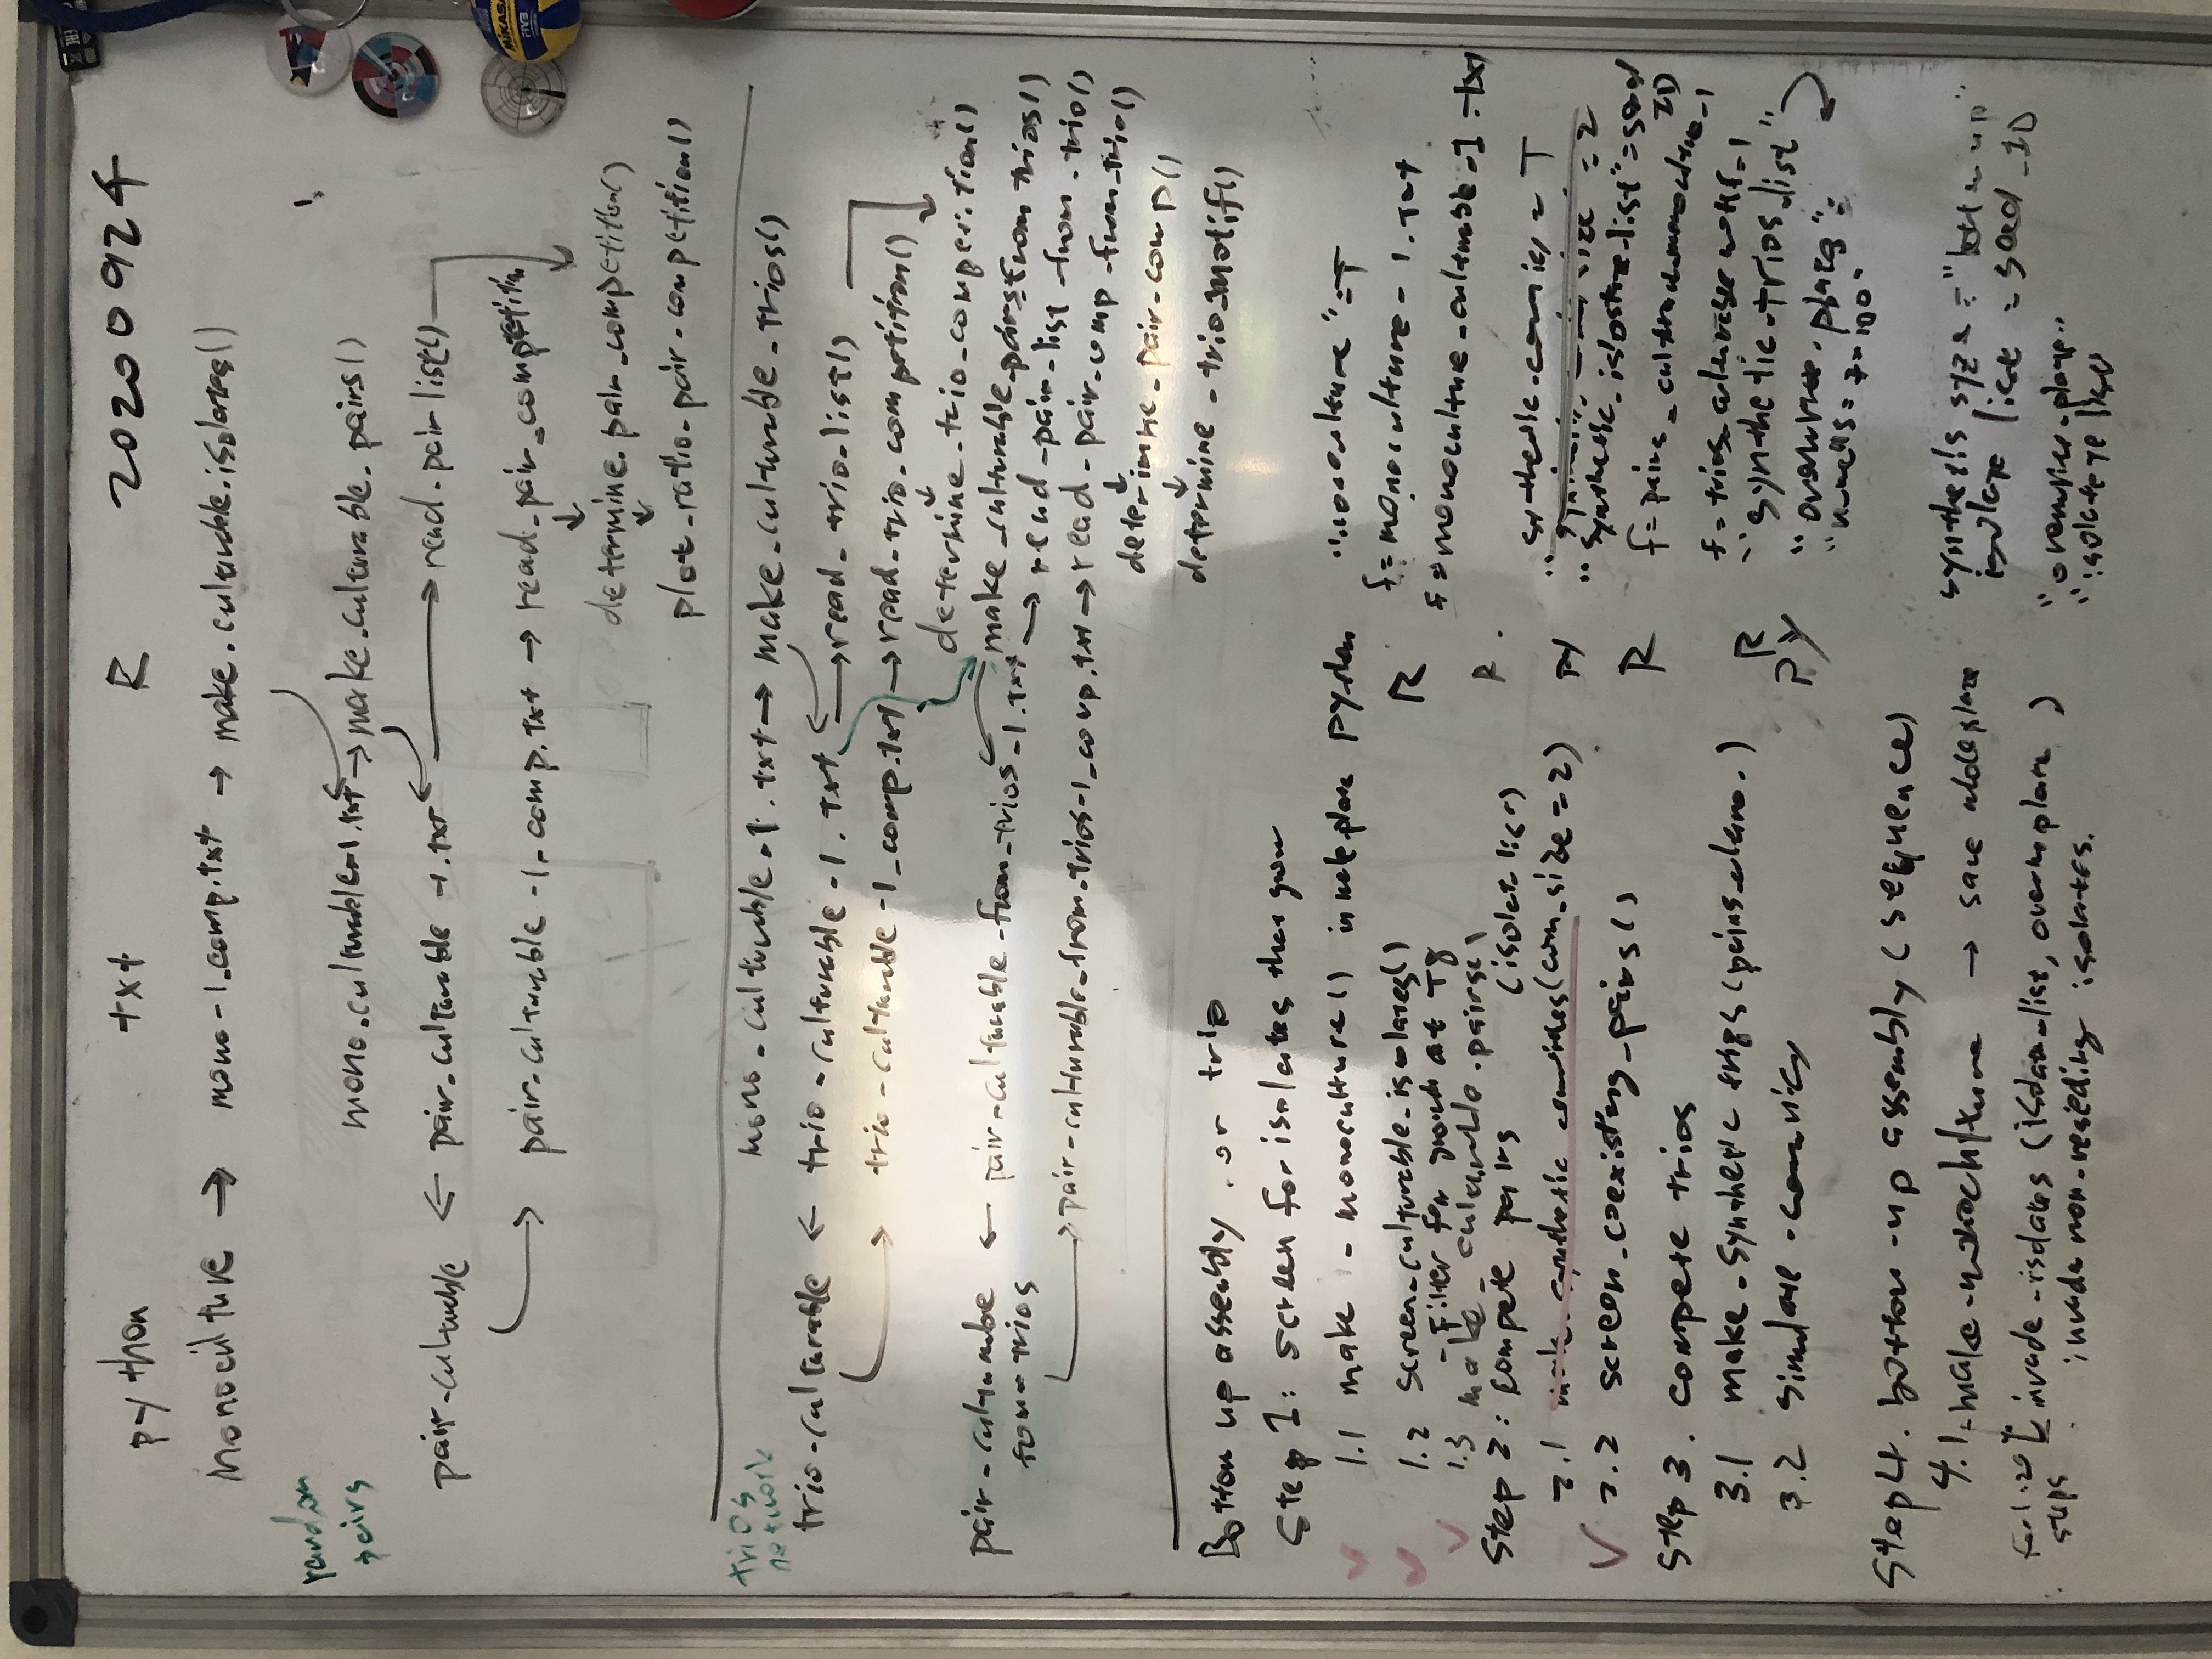 python txt R 2020 0924
monoculture → mono-1_comp.txt → make_culturable_isolates()
random
pairs
mono_culturable-1.txt → make_culturable_pairs()
pair-culturable ← pair_culturable-1.txt → read_pair_list()
pair_culturable-1_comp.txt → read_pair_competition
determine_pair_competition()
plot_ratio_pair_competition()
trios
network
mono_culturable-1.txt → make_culturable_trios()
trio-culturable ← trio-culturable-1.txt → read_trio_list()
trio-culturable-1_comp.txt → read_trio_competition()
determine_trio_competition()
pair-culturable ← pair-culturable-from-trios-1.txt make_culturable_pairs_from_trios()
from trios → read_pair_list_from_trio()
→ pair-culturable_from_trios-1_comp.txt → read_pair_comp_from_trio()
determine_pair_comp()
determine_trio_motif()
Bottom up assembly or trio
Step 1: Screen for isolates that grow
1.1 make-monoculture() in makeplane python "monoculture"=T
1.2 screen_culturable_isolates() R f=monoculture-1.txt
- Filter for growth at T8
1.3 make_culturable_pairs() R. f=monoculture_culturable-1.txt
(isolate list)
Step 2: compete pairs
2.1 make_synthetic communities(com_size=2) PY "synthetic_community"=T
"synthetic_isolate_list"=seed ID
2.2 screen_coexisting_pairs() R f=pairs_culturable_monoculture-1
Step 3. compete trios
3.1 make_synthetic trios(pairs_) R f=trios_
3.2 simulate community PY "synthetic_trios_list"
"overwrite_plate":
"nwells=?=100.
Step 4. bottom-up assembly (sequence)
4.1 make → same synthesis = "bottom up"
isolate list = seed_ID
for(i:20) invade-isolates (isolate_list, overwrite plate) "overwrite_plate"
steps invade non-resident isolates. "isolate list"